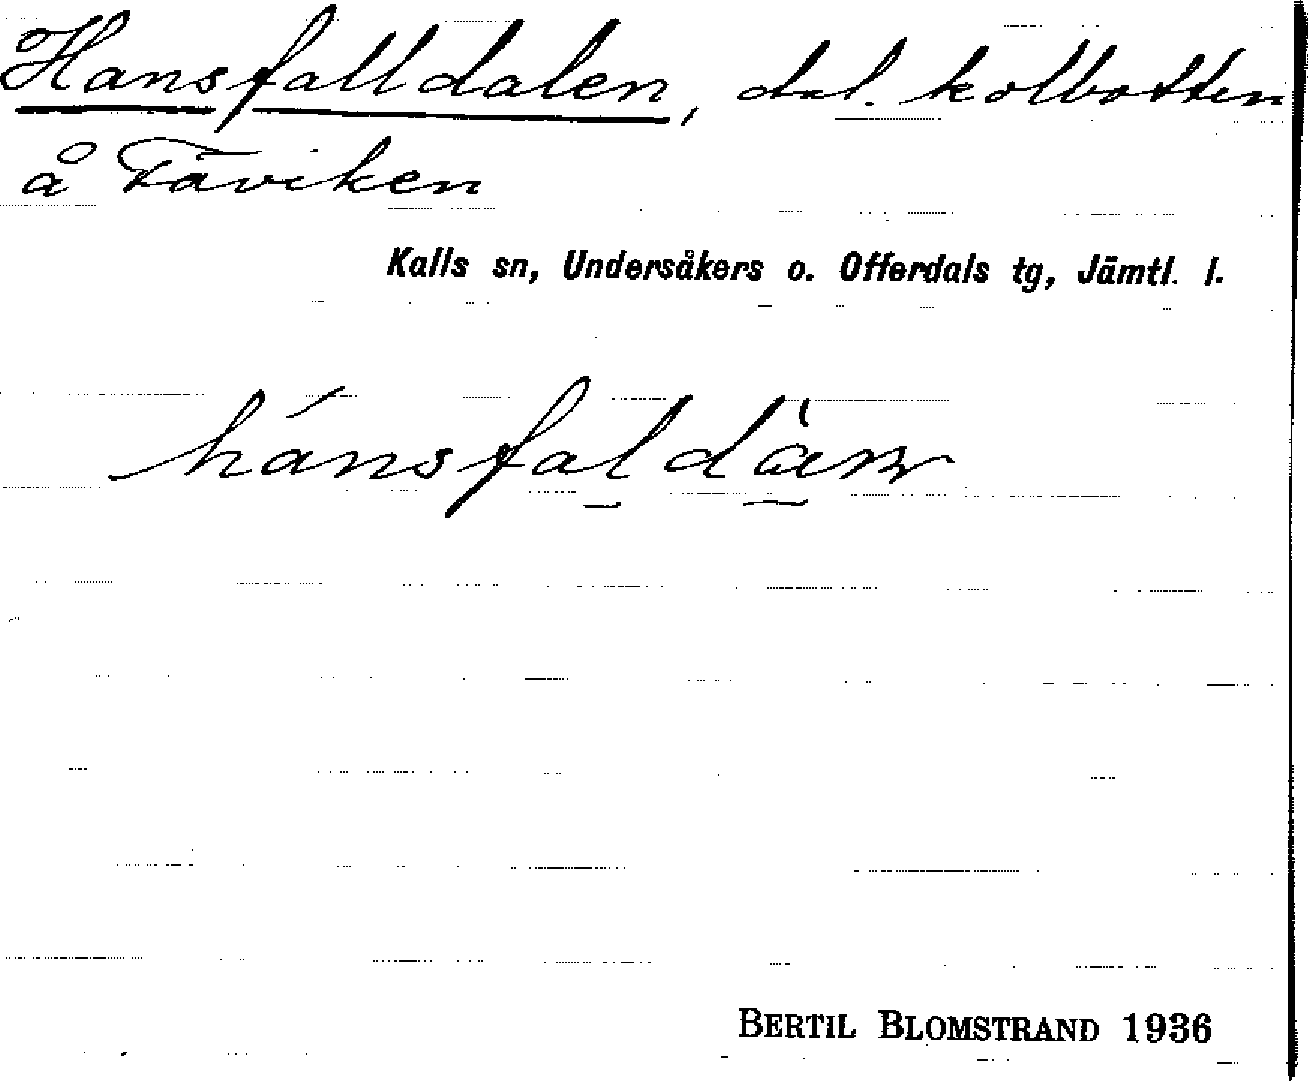 Hansfalldalen, dal. kolbotten
å Fäviken
Kalls sn, Undersåkers o. Offerdals tg, Jämtl. l.
BERTIL BLOMSTRAND 1936